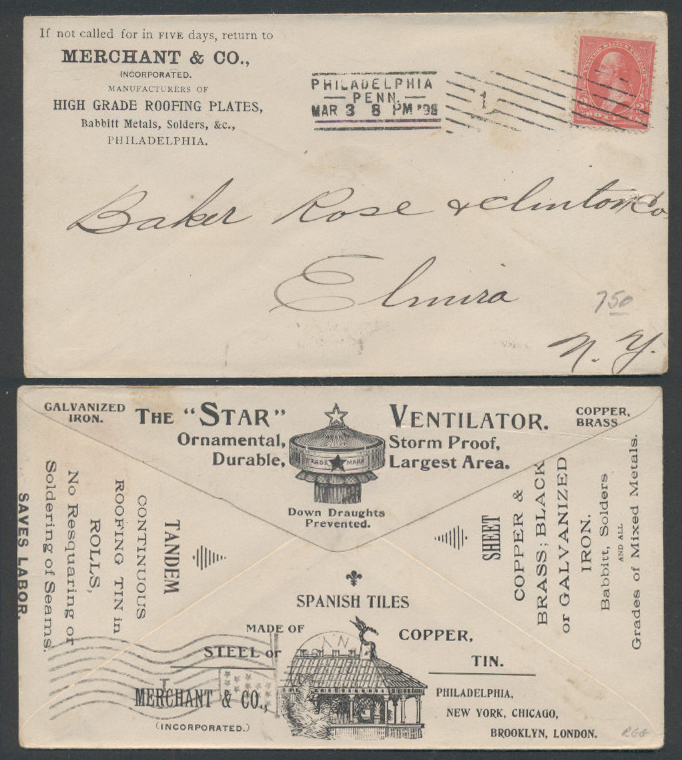 If not called for in FIVE days, return to
MERCHANT & CO.,
INCORPORATED.
MANUFACTURERS OF
HIGH GRADE ROOFING PLATES,
Babbitt Metals, Solders, &c.,
PHILADELPHIA.
PHILADELPHIA
— PENN. —
MAR 3 8 PM '98
1
Baker Rose & Clinton Co
Elmira
N. Y.
750
GALVANIZED
IRON.
THE "STAR" VENTILATOR.
COPPER,
BRASS
Ornamental, Storm Proof,
Durable, Largest Area.
TRADE MARK
Down Draughts
Prevented.
TANDEM
CONTINUOUS
ROOFING TIN in
ROLLS,
No Resquaring or
Soldering of Seams.
SAVES LABOR.
SHEET
COPPER &
BRASS; BLACK
or GALVANIZED
IRON.
Babbitt, Solders
AND ALL
Grades of Mixed Metals.
SPANISH TILES
MADE OF
STEEL or
COPPER,
TIN.
MERCHANT & CO.,
(INCORPORATED.)
PHILADELPHIA,
NEW YORK, CHICAGO,
BROOKLYN, LONDON.